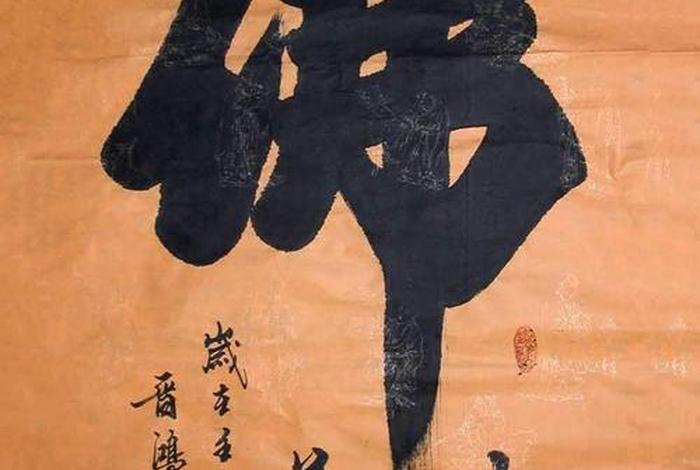 佛
歲在壬
晋鴻